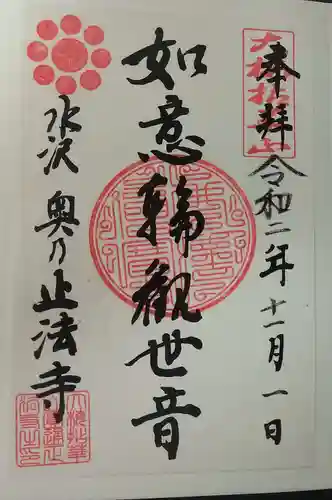 奉拝 令和二年十一月一日
如意輪觀世音
水沢 奥乃止法寺